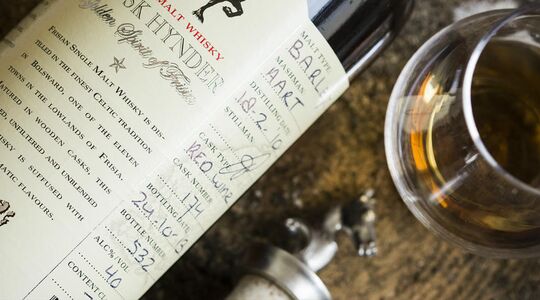 MALT WHISKY
SK HYNDER
Golden Spirit of
FRISIAN SINGLE MALT WHISKY IS DIS-
TILLED IN THE FINEST CELTIC TRADITION
BOLSWARD, ONE OF THE ELEVEN
TOWNS IN THE LOWLANDS OF FRISIA.
MATURED IN WOODEN CASKS, THIS
ED, UNFILTERED AND UNBLENDED
HISKY IS SUFFUSED WITH
MATIC FLAVOURS.
MALT TYPE
BARL
MASHMAN
AART
DISTILLING DATE
18.2.10
STILLMAN
CASK TYPE
RED WINE
CASK NUMBER
174
BOTTLING DATE
24.10.13
BOTTLE NUMBER
532
ALC%/VOL
40
CONTENT